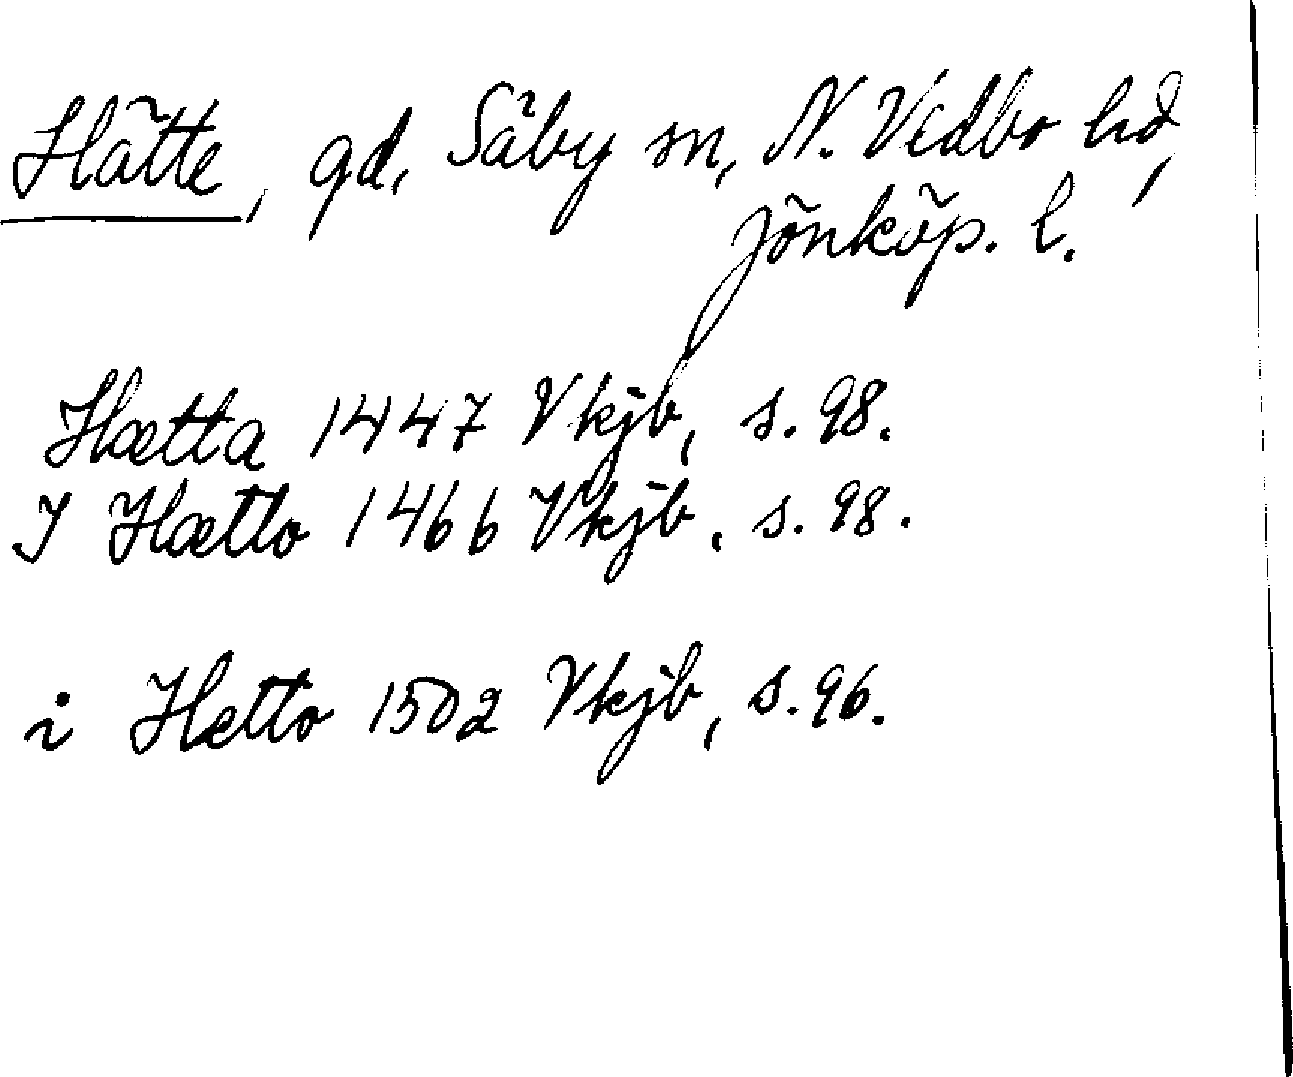 Hätte, gd, Säby sn, N. Vedbo hd,
Jönköp. l.
Hætta 1447 Vkjb, s. 98.
I Hætto 1466 Vkjb, s. 98.
i Hetto 1502 Vkjb, s. 96.